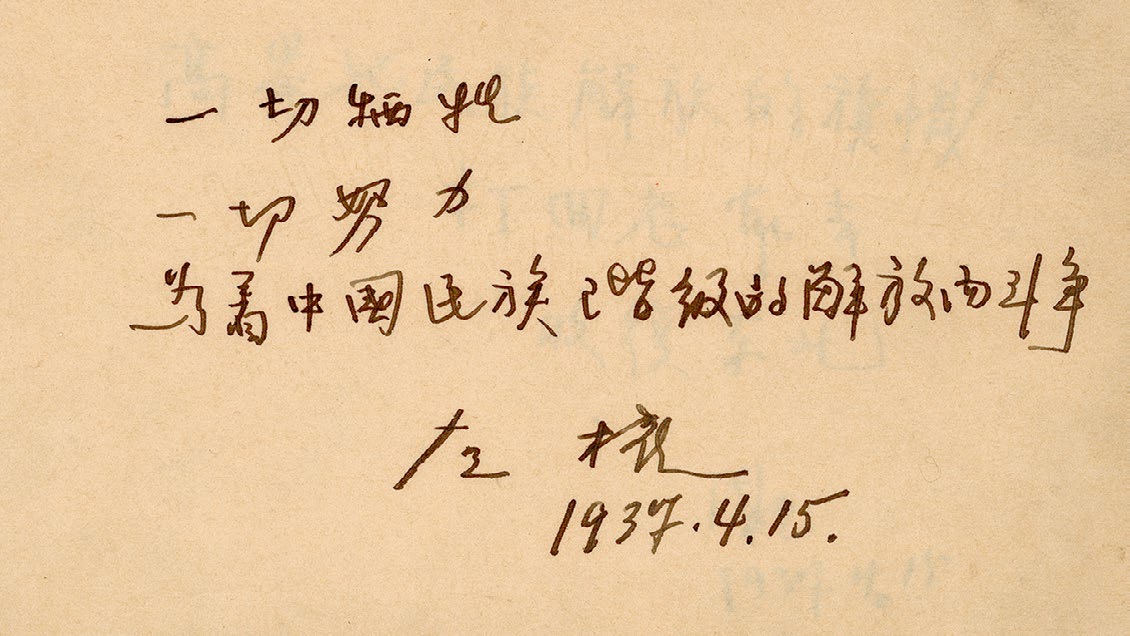 一切牺牲
一切努力
为着中國民族阶级的解放而斗争
左權
1937.4.15.